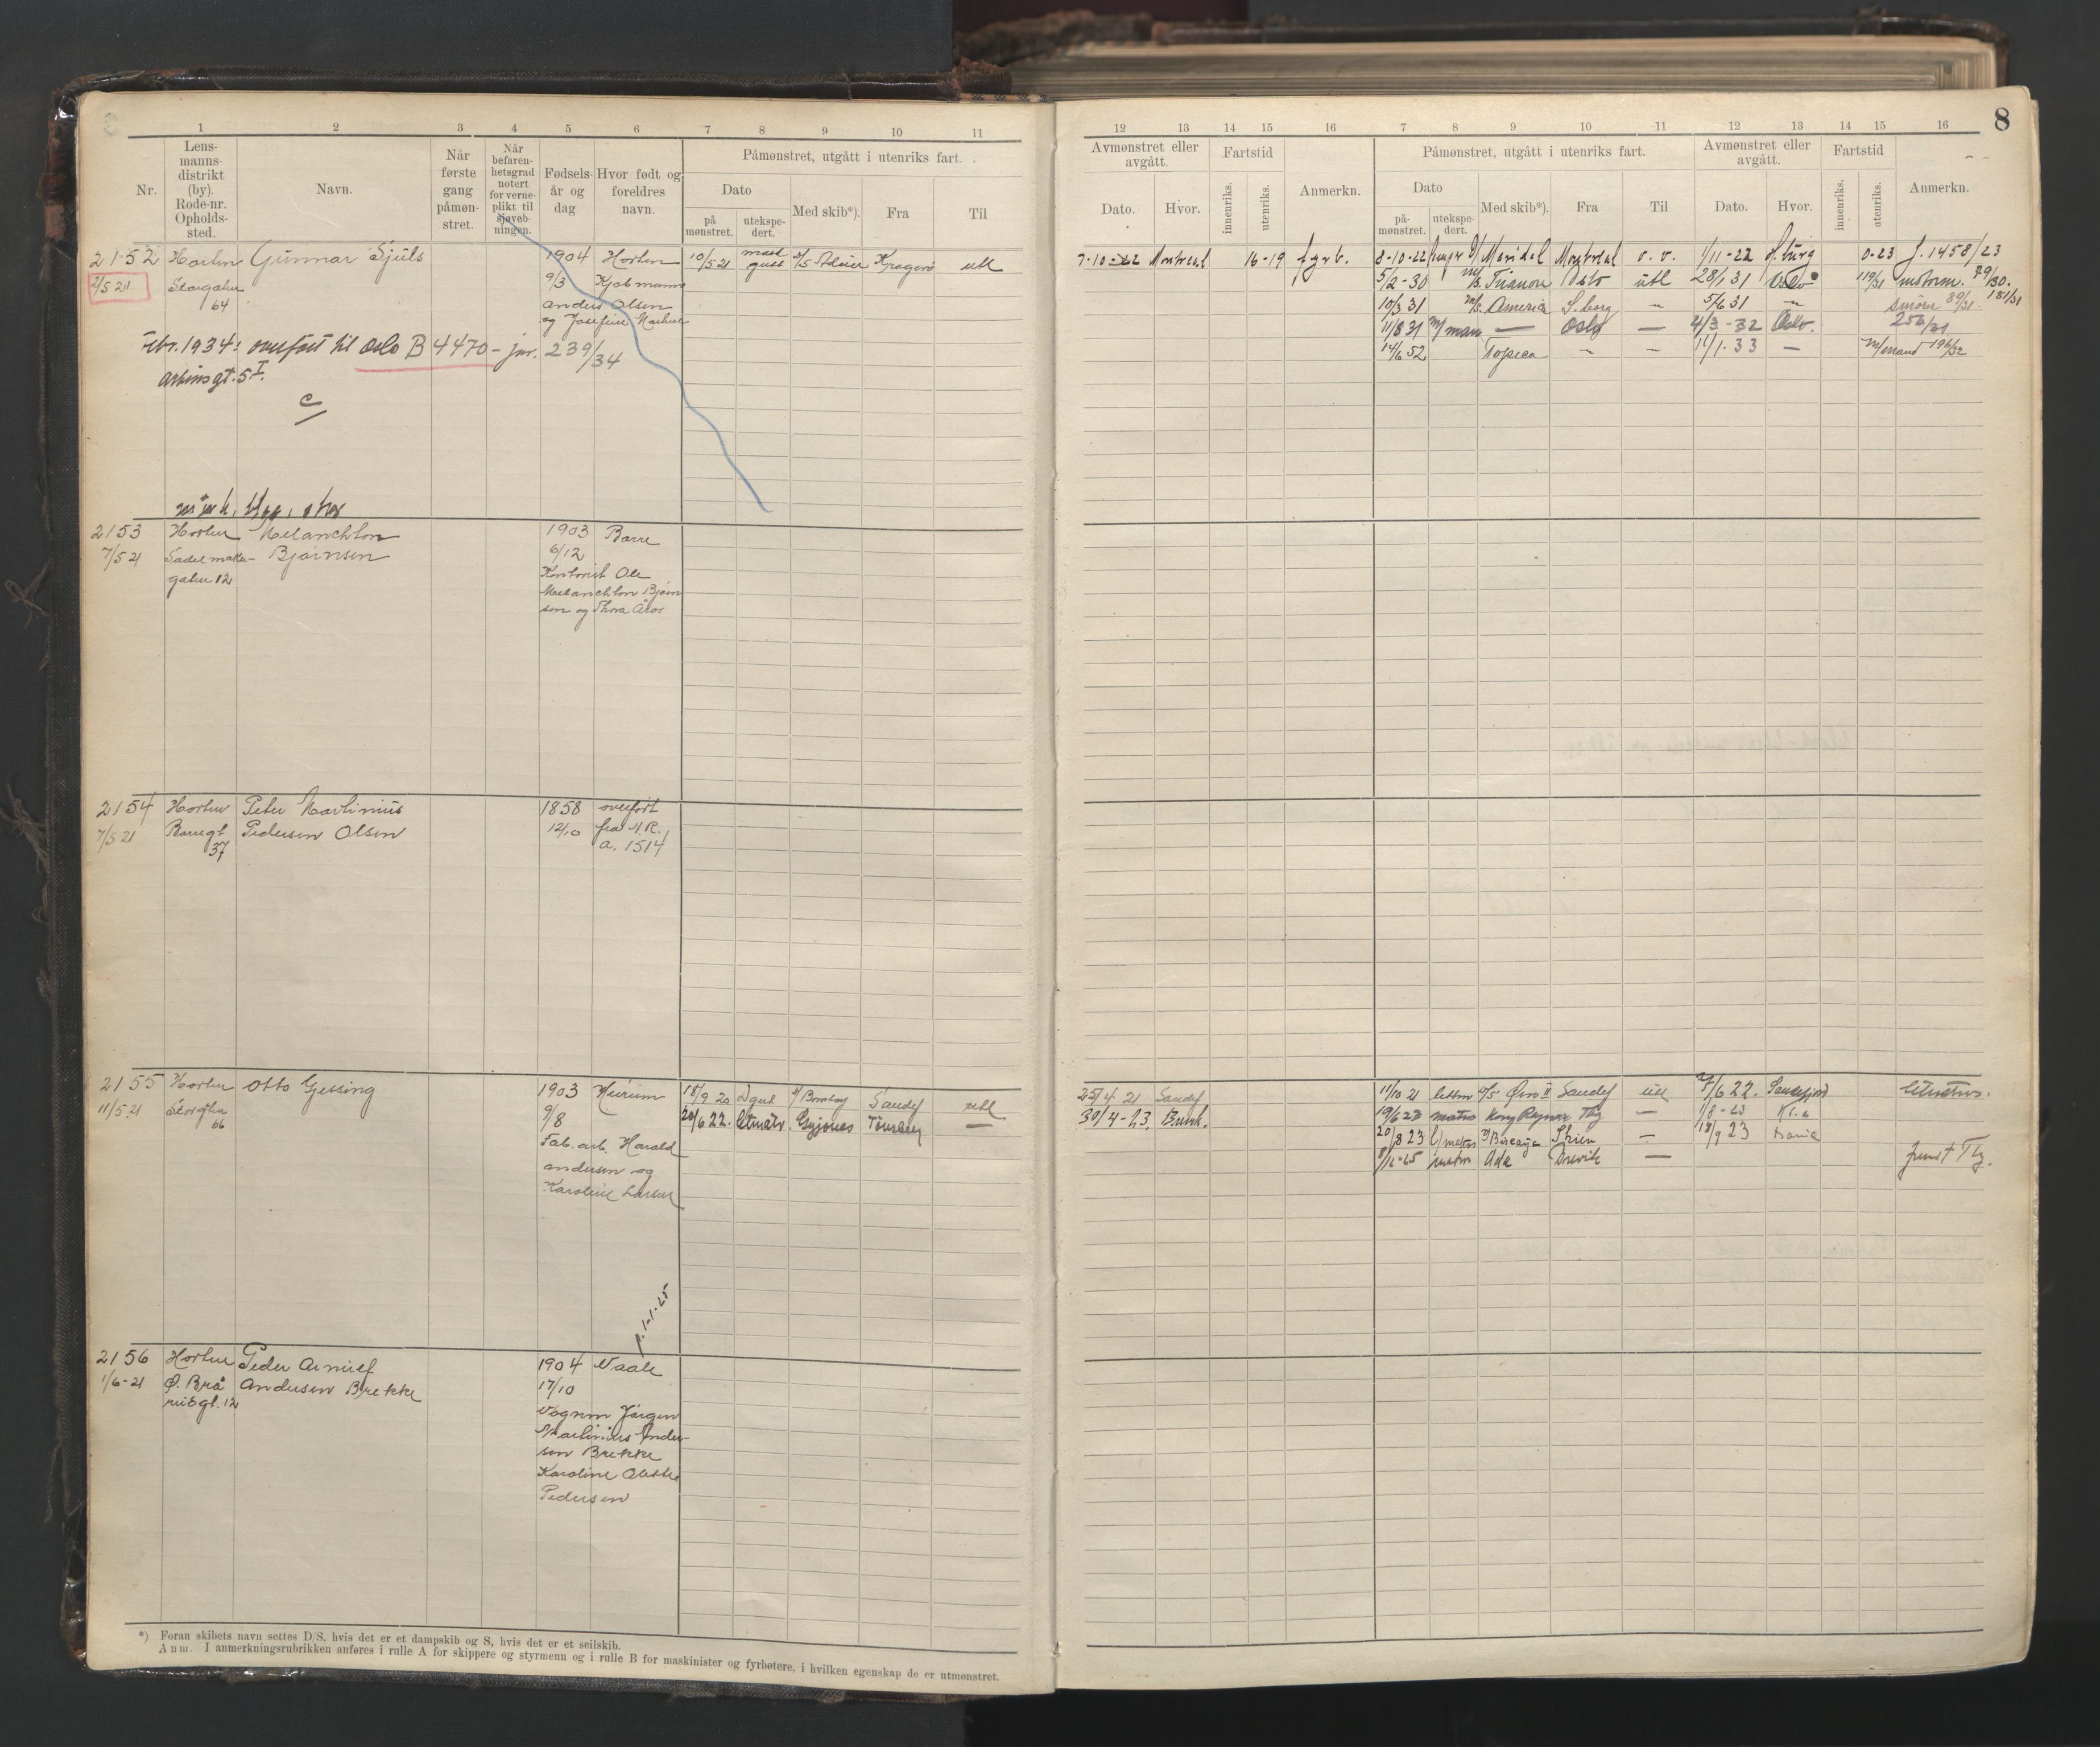 8
1 2 3 4 5 6 7 8 9 10 11
12 13 14 15 16 7 8 9 10 11 12 13 14 15 16
Nr.
Lens-
manns-
distrikt
(by).
Rode-nr.
Opholds-
sted.
Navn.
Når
første
gang
påmøn-
stret.
Når
befaren-
hetsgrad
notert
for verne-
plikt til
sjøveb-
ningen.
Fødsels-
år og
dag
Hvor født og
foreldres
navn.
Påmønstret, utgått i utenriks fart.
Dato
på
mønstret.
utekspe-
dert.
Med skib*).
Fra
Til
Avmønstret eller
avgått.
Dato.
Hvor.
Fartstid
innenriks.
utenriks.
Anmerkn.
Påmønstret, utgått i utenriks fart.
Dato
på-
mønstret.
utekspe-
dert.
Med skib*).
Fra
Til
Avmønstret eller
avgått.
Dato.
Hvor.
Fartstid
innenriks.
utenriks.
Anmerkn.
2152 Horten Gunnar Sjuls 1904 Horten 10/5 21 Kragerø utl
2/5 21 Storgaten
64
9/3 Kjøbmann
Anders Olsen
og Josefine
Febr. 1934: overført til Oslo B 4470 - jnr. 239/34
gt. 5 I.
7-10-22 Montreal 16-19 fyrb. 8-10-22 Montreal 1/11-22 0-23 J. 1458/23
5/2-30 M/S. Trianon Oslo utl 28/1 31 Oslo 119/31 motorm. 79/30. 181/31
10/3 31 M/S. America S.borg — 5/6 31 — smører 89/31.
11/8 31 — Oslo — 4/3-32 Oslo. 256/31
Topeka — — 11/1-33 — 196/32
2153 Horten Melanchton 1903 Borre
7/5 21 Sadelmaker- Bjørnsen 6/12
gaten 12 Kontorist Ole
Melanchton Bjørn
sen og Thora Aros
2154 Horten Peter Martinius 1858 overført
7/5 21 Borregt. Pedersen Olsen 12/10 fra A.R.
37 a. 1514
2155 Horten Otto Gessing 1903 Hurum 18/9 20 Dgut Bombay Sandef utl
11/5-21 Storgaten 9/8 20/6 22. Tønsberg —
66
Fab. arb. Harald
Andersen og
Karoline Larsen
25/4 21 Sandef 11/10 21 lettm Ørn II Sandef utl 5/6 22. Sandefjord
30/4-23. 19/6 23 matro Kong Ragnar Tbg — 1/8-23
20/8 23 Biscaya Skien — 18/9 23
matro Ada Brevik — Tbg.
2156 Horten Peder Arnulf 1904 Vaale
1/6-21 Ø. Brå Andersen Brekke 17/10
rudgt. 12
Vognm Jørgen
Martinius Ander-
sen Brekke
Karoline
Pedersen
*) Foran skibets navn settes D/S, hvis det er et dampskib og S, hvis det er et seilskib.
Anm. I anmerkningsrubrikken anføres i rulle A for skippere og styrmenn og i rulle B for maskinister og fyrbøtere, i hvilken egenskap de er utmønstret.